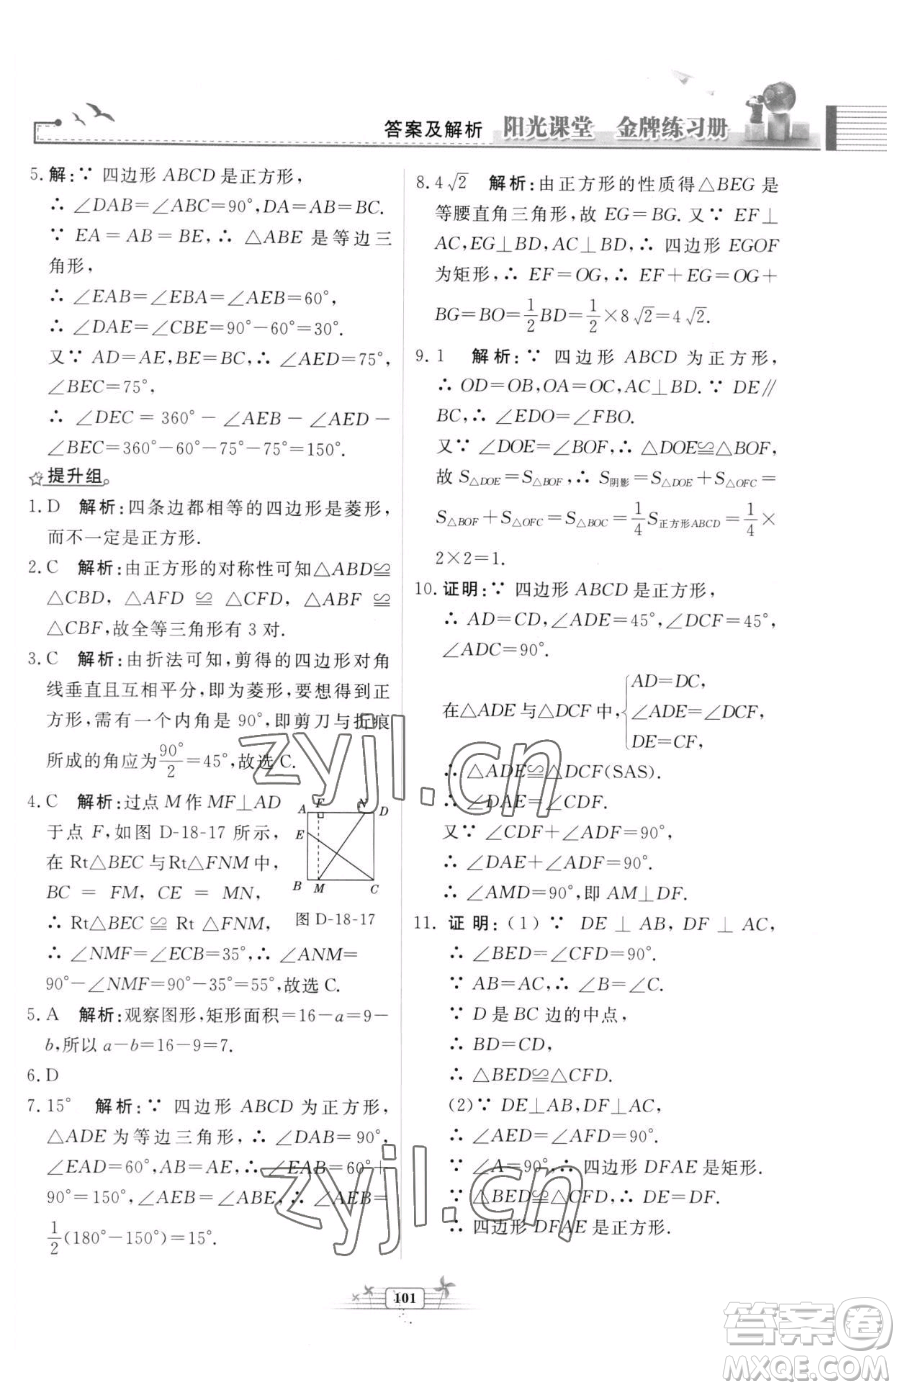 答案及解析 阳光课堂 金牌练习册
5.解:∵ 四边形 ABCD 是正方形,
∴ ∠DAB=∠ABC=90°,DA=AB=BC.
∵ EA=AB=BE,∴ △ABE 是等边三
角形,
∴ ∠EAB=∠EBA=∠AEB=60°,
∴ ∠DAE=∠CBE=90°-60°=30°.
又∵ AD=AE,BE=BC,∴ ∠AED=75°,
∠BEC=75°,
∴ ∠DEC=360°-∠AEB-∠AED-
∠BEC=360°-60°-75°-75°=150°.
提升组
1.D 解析:四条边都相等的四边形是菱形,
而不一定是正方形.
2.C 解析:由正方形的对称性可知△ABD≌
△CBD,△AFD≌△CFD,△ABF≌
△CBF,故全等三角形有 3 对.
3.C 解析:由折法可知,剪得的四边形对角
线垂直且互相平分,即为菱形,要得到正
方形,需有一个内角是 90°,即剪刀与折痕
所成的角应为90°/2=45°,故选 C.
4.C 解析:过点 M 作 MF⊥AD
于点 F,如图 D-18-17 所示,
在 Rt△BEC 与 Rt△FNM 中,
BC=FM,CE=MN,
∴ Rt△BEC≌Rt△FNM,
∴ ∠NMF=∠ECB=35°,∴ ∠ANM=
90°-∠NMF=90°-35°=55°,故选 C.
A F N D
E
B M C
图 D-18-17
5.A 解析:观察图形,矩形面积=16-a=9-
b,所以 a-b=16-9=7.
6.D
7.15° 解析:∵ 四边形 ABCD 为正方形,
△ADE 为等边三角形,∴ ∠DAB=90°,
∠EAD=60°,AB=AE,∴ ∠BAE=60°+
90°=150°,∠AEB=∠ABE,∴ ∠AEB=
1/2(180°-150°)=15°.
8.4√2 解析:由正方形的性质得△BEG 是
等腰直角三角形,故 EG=BG.又∵ EF⊥
AC,EG⊥BD,AC⊥BD,∴ 四边形 EGOF
为矩形,∴ EF=OG,∴ EF+EG=OG+
BG=BO=1/2BD=1/2×8√2=4√2.
9.1 解析:∵ 四边形 ABCD 为正方形,
∴ OD=OB,OA=OC,AC⊥BD.∵ DE∥
BC,∴ ∠EDO=∠FBO.
又∵ ∠DOE=∠BOF,∴ △DOE≌△BOF,
故 S△DOE=S△BOF,∴ S阴影=S△DOE+S△OFC=
S△BOF+S△OFC=S△BOC=1/4S正方形ABCD=1/4×
2×2=1.
10.证明:∵ 四边形 ABCD 是正方形,
∴ AD=CD,∠ADE=45°,∠DCF=45°,
∠ADC=90°.
在△ADE 与△DCF 中,{AD=DC,
∠ADE=∠DCF,
DE=CF,
∴ △ADE≌△DCF(SAS).
∴ ∠DAE=∠CDF.
又∵ ∠CDF+∠ADF=90°,
∴ ∠DAE+∠ADF=90°,
∴ ∠AMD=90°,即 AM⊥DF.
11.证明:(1)∵ DE⊥AB,DF⊥AC,
∴ ∠BED=∠CFD=90°.
∵ AB=AC,∴ ∠B=∠C.
∵ D 是 BC 边的中点,
∴ BD=CD.
∴ △BED≌△CFD.
(2)∵ DE⊥AB,DF⊥AC,
∴ ∠AED=∠AFD=90°.
∵ ∠A=90°,∴ 四边形 DFAE 是矩形.
∵ △BED≌△CFD,∴ DE=DF.
∴ 四边形 DFAE 是正方形.
101
zyjl.cn
zyjl.cn
答案圈
MXQE.COM